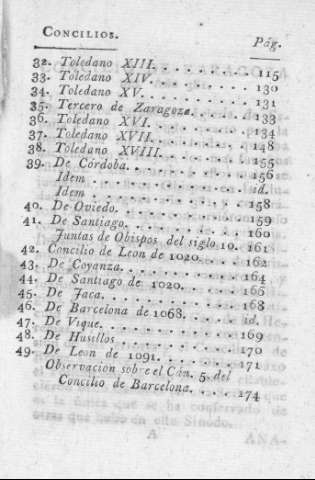 CONCILIOS.
Pág.
32. Toledano XIII. . . . . . . . . . 115
33. Toledano XIV. . . . . . . . . . 130
34. Toledano XV. . . . . . . . . . . 131
35. Tercero de Zaragoza. . . . . . 133
36. Toledano XVI. . . . . . . . . . 134
37. Toledano XVII. . . . . . . . . 148
38. Toledano XVIII. . . . . . . . . 155
39. De Córdoba. . . . . . . . . . . 156
Idem . . . . . . . . . . . . . . id.
Idem . . . . . . . . . . . . . . 158
40. De Oviedo. . . . . . . . . . . . 159
41. De Santiago. . . . . . . . . . . 160
Juntas de Obispos del siglo 10. 161
42. Concilio de Leon de 1020. . . . 162
43. De Coyanza. . . . . . . . . . . 164
44. De Santiago de 1020. . . . . . 166
45. De Jaca. . . . . . . . . . . . . 168
46. De Barcelona de 1068. . . . . id.
47. De Vique. . . . . . . . . . . . 169
48. De Husillos . . . . . . . . . . 170
49. De Leon de 1091. . . . . . . . 171
Observacion sobre el Cán. 5. del
Concilio de Barcelona. . . . . 174
A
ANA-